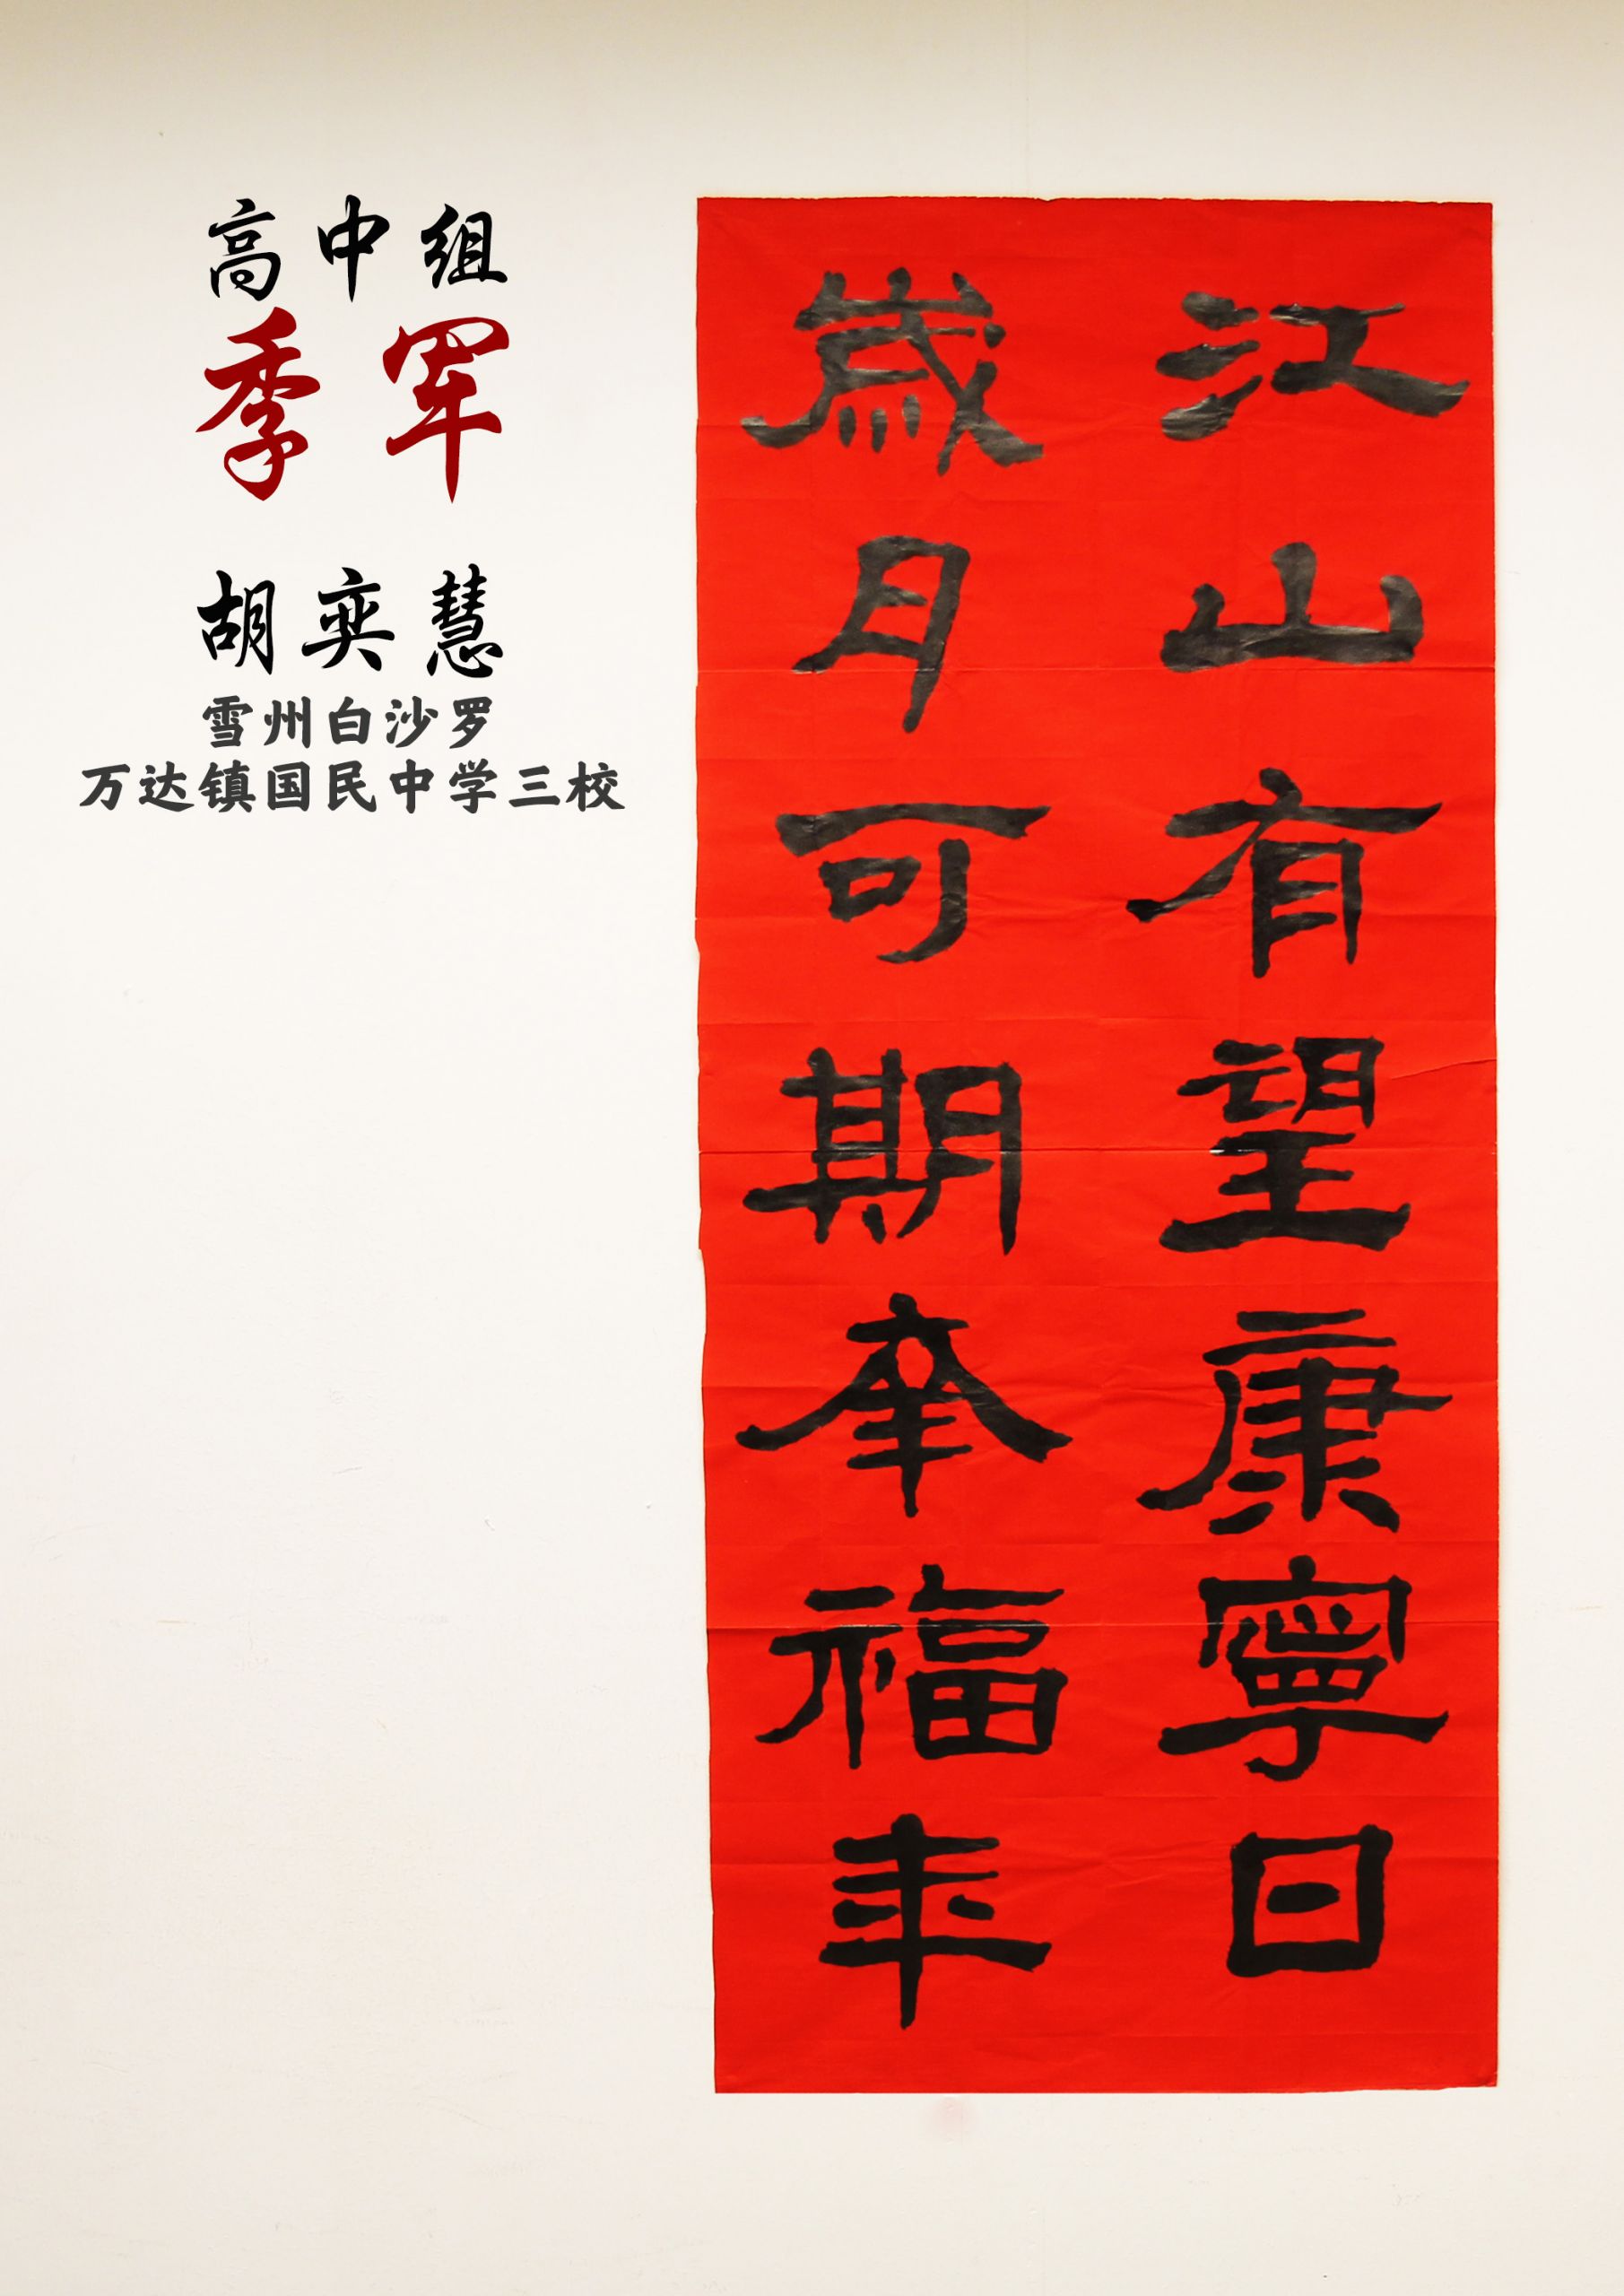 高中组
季军
胡奕慧
雪州白沙罗
万达镇国民中学三校
江山有望康寧日
歲月可期奉福年